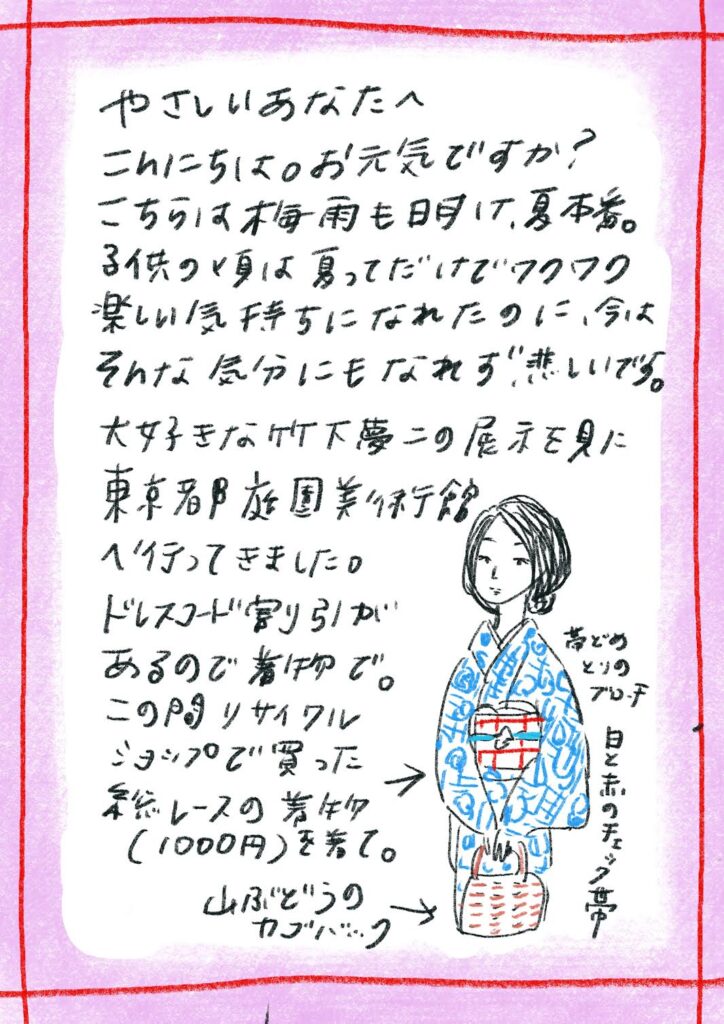 やさしいあなたへ
こんにちは。お元気ですか?
こちらは梅雨も明け、夏本番。
子供の頃は夏ってだけでワクワク
楽しい気持ちになれたのに、今は
そんな気分にもなれず、悲しいです。
大好きな竹下夢二の展示を見に
東京都庭園美術館
へ行ってきました。
ドレスコード割り引が
あるので着物で。
この間リサイクル
ショップで買った
総レースの着物
(1000円)を着て。
山ぶどうの
カゴバック
帯どめ
とりの
ブローチ
白と赤のチェック帯